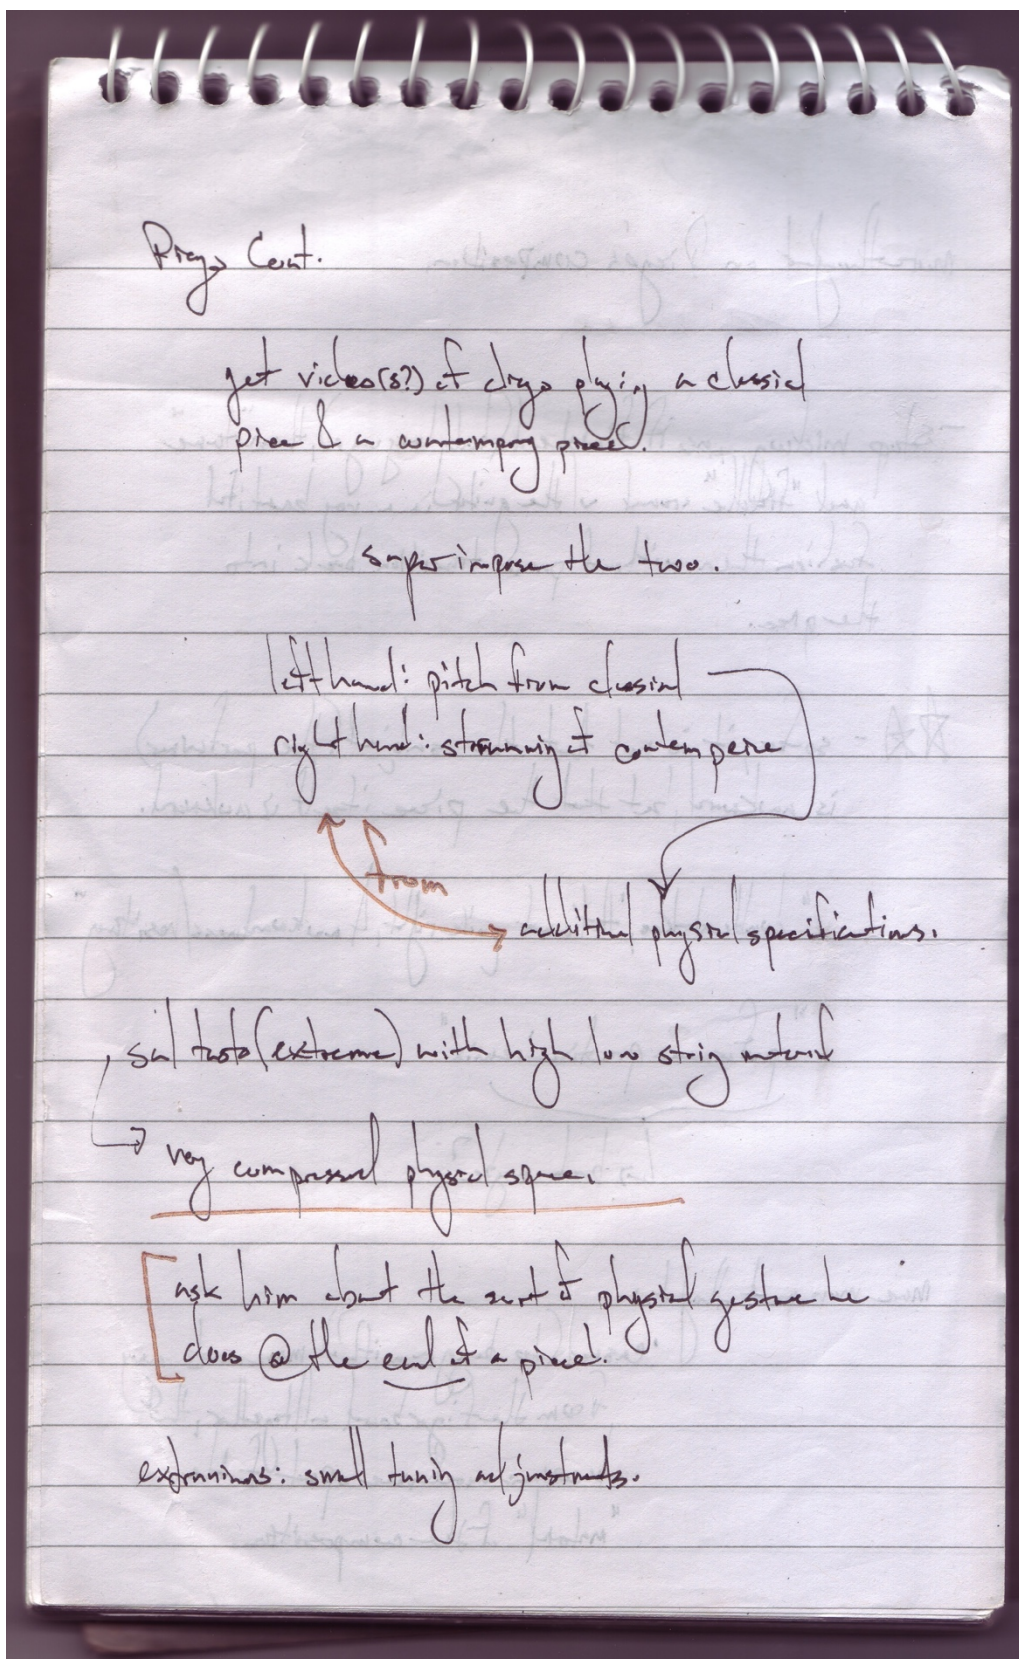 Diego Cont.
get video(s?) of diego playing a classical
piece & a contemporary piece.
superimpose the two.
left hand: pitch from classical
right hand: strumming of contemp piece
from
additional physical specifications.
sul tasto (extreme) with high low string material
very compressed physical space.
ask him about the sort of physical gesture he
does @ the end of a piece.
small tuning adjustments.